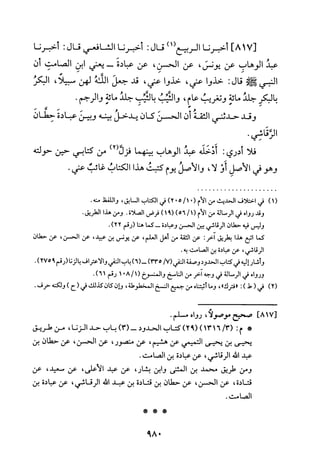 [٨١٧] أخبرنا الربيع(١) قال: أخبرنا الشافعي قال: أخبرنا
عبدُ الوهابِ عن يونسَ، عن الحسنِ، عن عبادةَ ـ يعني ابن الصامتِ أن
النبي ﷺ قال: خذوا عني، خذوا عني، قد جعلَ اللَّهُ لهن سبيلًا، البكرُ
بالبكرِ جلدُ مائةٍ وتغريبُ عامٍ، والثَّيِّبُ بالثَّيِّبِ جلدُ مائةٍ والرجم.
وقد حدثني الثقةُ أن الحسنَ كان يدخلُ بينه وبينَ عبادةَ حِطَّانَ
الرَّقَاشِي.
فلا أدري: أَدْخَلَه عبدُ الوهابِ بينهما فَزَلَّ(٢) من كتابي حين حولته
وهو في الأصلِ أوْ لا، والأصلُ يوم كتبتُ هذا الكتابَ غائبٌ عني.
(١) في اختلاف الحديث من الأم (١٠/٢٠٥) في الكتاب السابق، واللفظ منه.
وقد رواه في الرسالة من الأم (٥٦/١) (١٩) فرض الصلاة. ومن هذا الطريق.
وليس فيه حطان الرقاشي بين الحسن وعبادة ـ كما هنا (رقم ٢٢).
كما أتبع هذا بطريق آخر: عن الثقة من أهل العلم، عن يونس بن عبيد، عن الحسن، عن حطان
الرقاشي، عن عبادة بن الصامت به.
وأشار إليه في كتاب الحدود وصفة النفي (٣٣٥/٧) ـ (٦) باب النفي والاعتراف بالزنا (رقم ٢٧٥٩).
ورواه في الرسالة في وجه آخر من الناسخ والمنسوخ (١٠٨/١ رقم ٦١).
(٢) في (ط): «فترك»، وما أثبتناه من جميع النسخ المخطوطة، وإن كان كذلك في (ح) ولكنه حرف.
[٨١٧] صحيح موصولًا، رواه مسلم.
* م: (١٣١٦/٣) (٢٩) كتاب الحدود ـ (٣) باب حد الزنا، من طريق
يحيى بن يحيى التميمي عن هشيم، عن منصور، عن الحسن، عن حطان بن
عبد الله الرقاشي، عن عبادة بن الصامت.
ومن طريق محمد بن المثنى وابن بشار، عن عبد الأعلى، عن سعيد، عن
قتادة، عن الحسن، عن حطان بن قتادة بن عبد الله الرقاشي، عن عبادة بن
الصامت.
* * *
٩٨٠